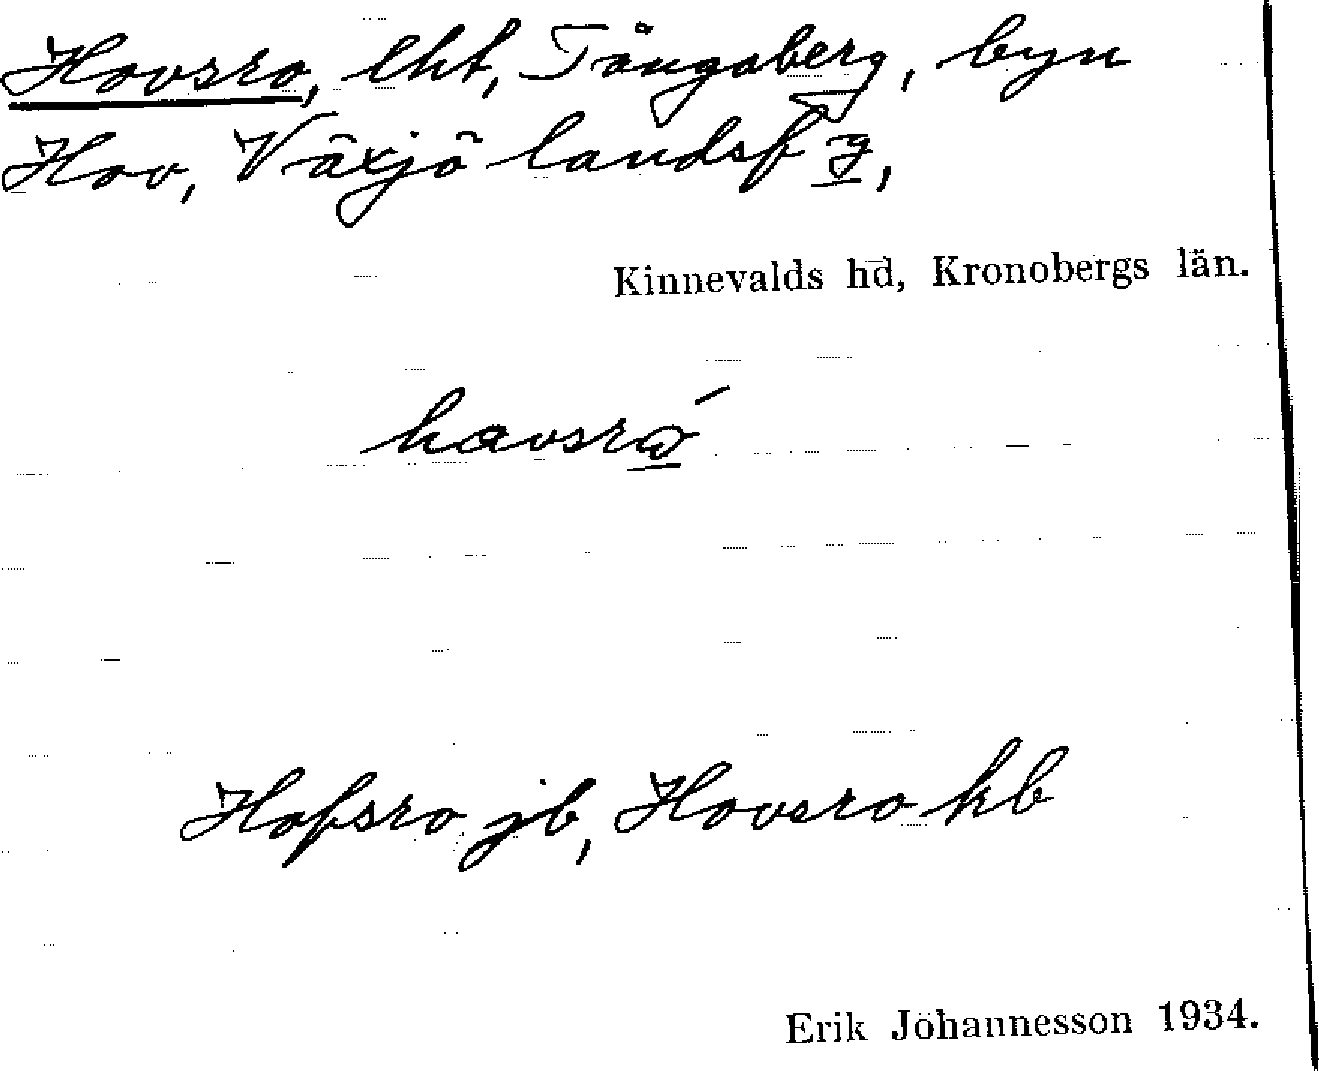 Hovsro, lht, Tångaberg, byn
Hov, Växjö landsf g,
Kinnevalds hd, Kronobergs län.
havsrω̲´
Hofsro jb, Hovsro kb
Erik Johannesson 1934.